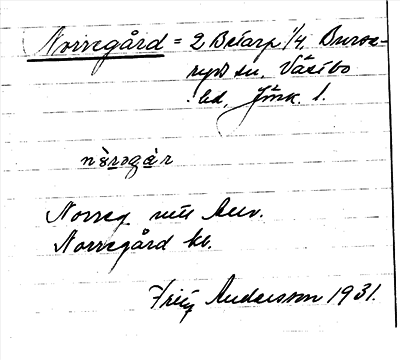 Norregård = 2 Betarp 1/4, Burse-
ryd sn, Västbo
hd, Jönk. l.
nòrəgàr
Norreg utt Auv.
Norregård kb.
Fritz Andersson 1931.